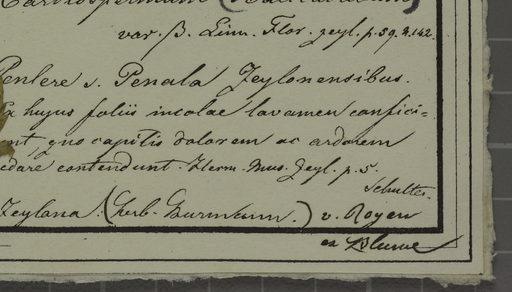 Cardiospermum (Halicacabum)
var. β. Linn. Flor. zeyl. p. 59. n. 142.
Penlere s. Penala Zeylonensibus.
Ex hujus foliis incolae lavamen confici=
unt, quo capitis dolorem ac ardorem
sedare contendunt. Herm. Mus. Zeyl. p. 5.
Schultes.
Zeylana. (herb. Burmann.) v. Royen
ex Blume